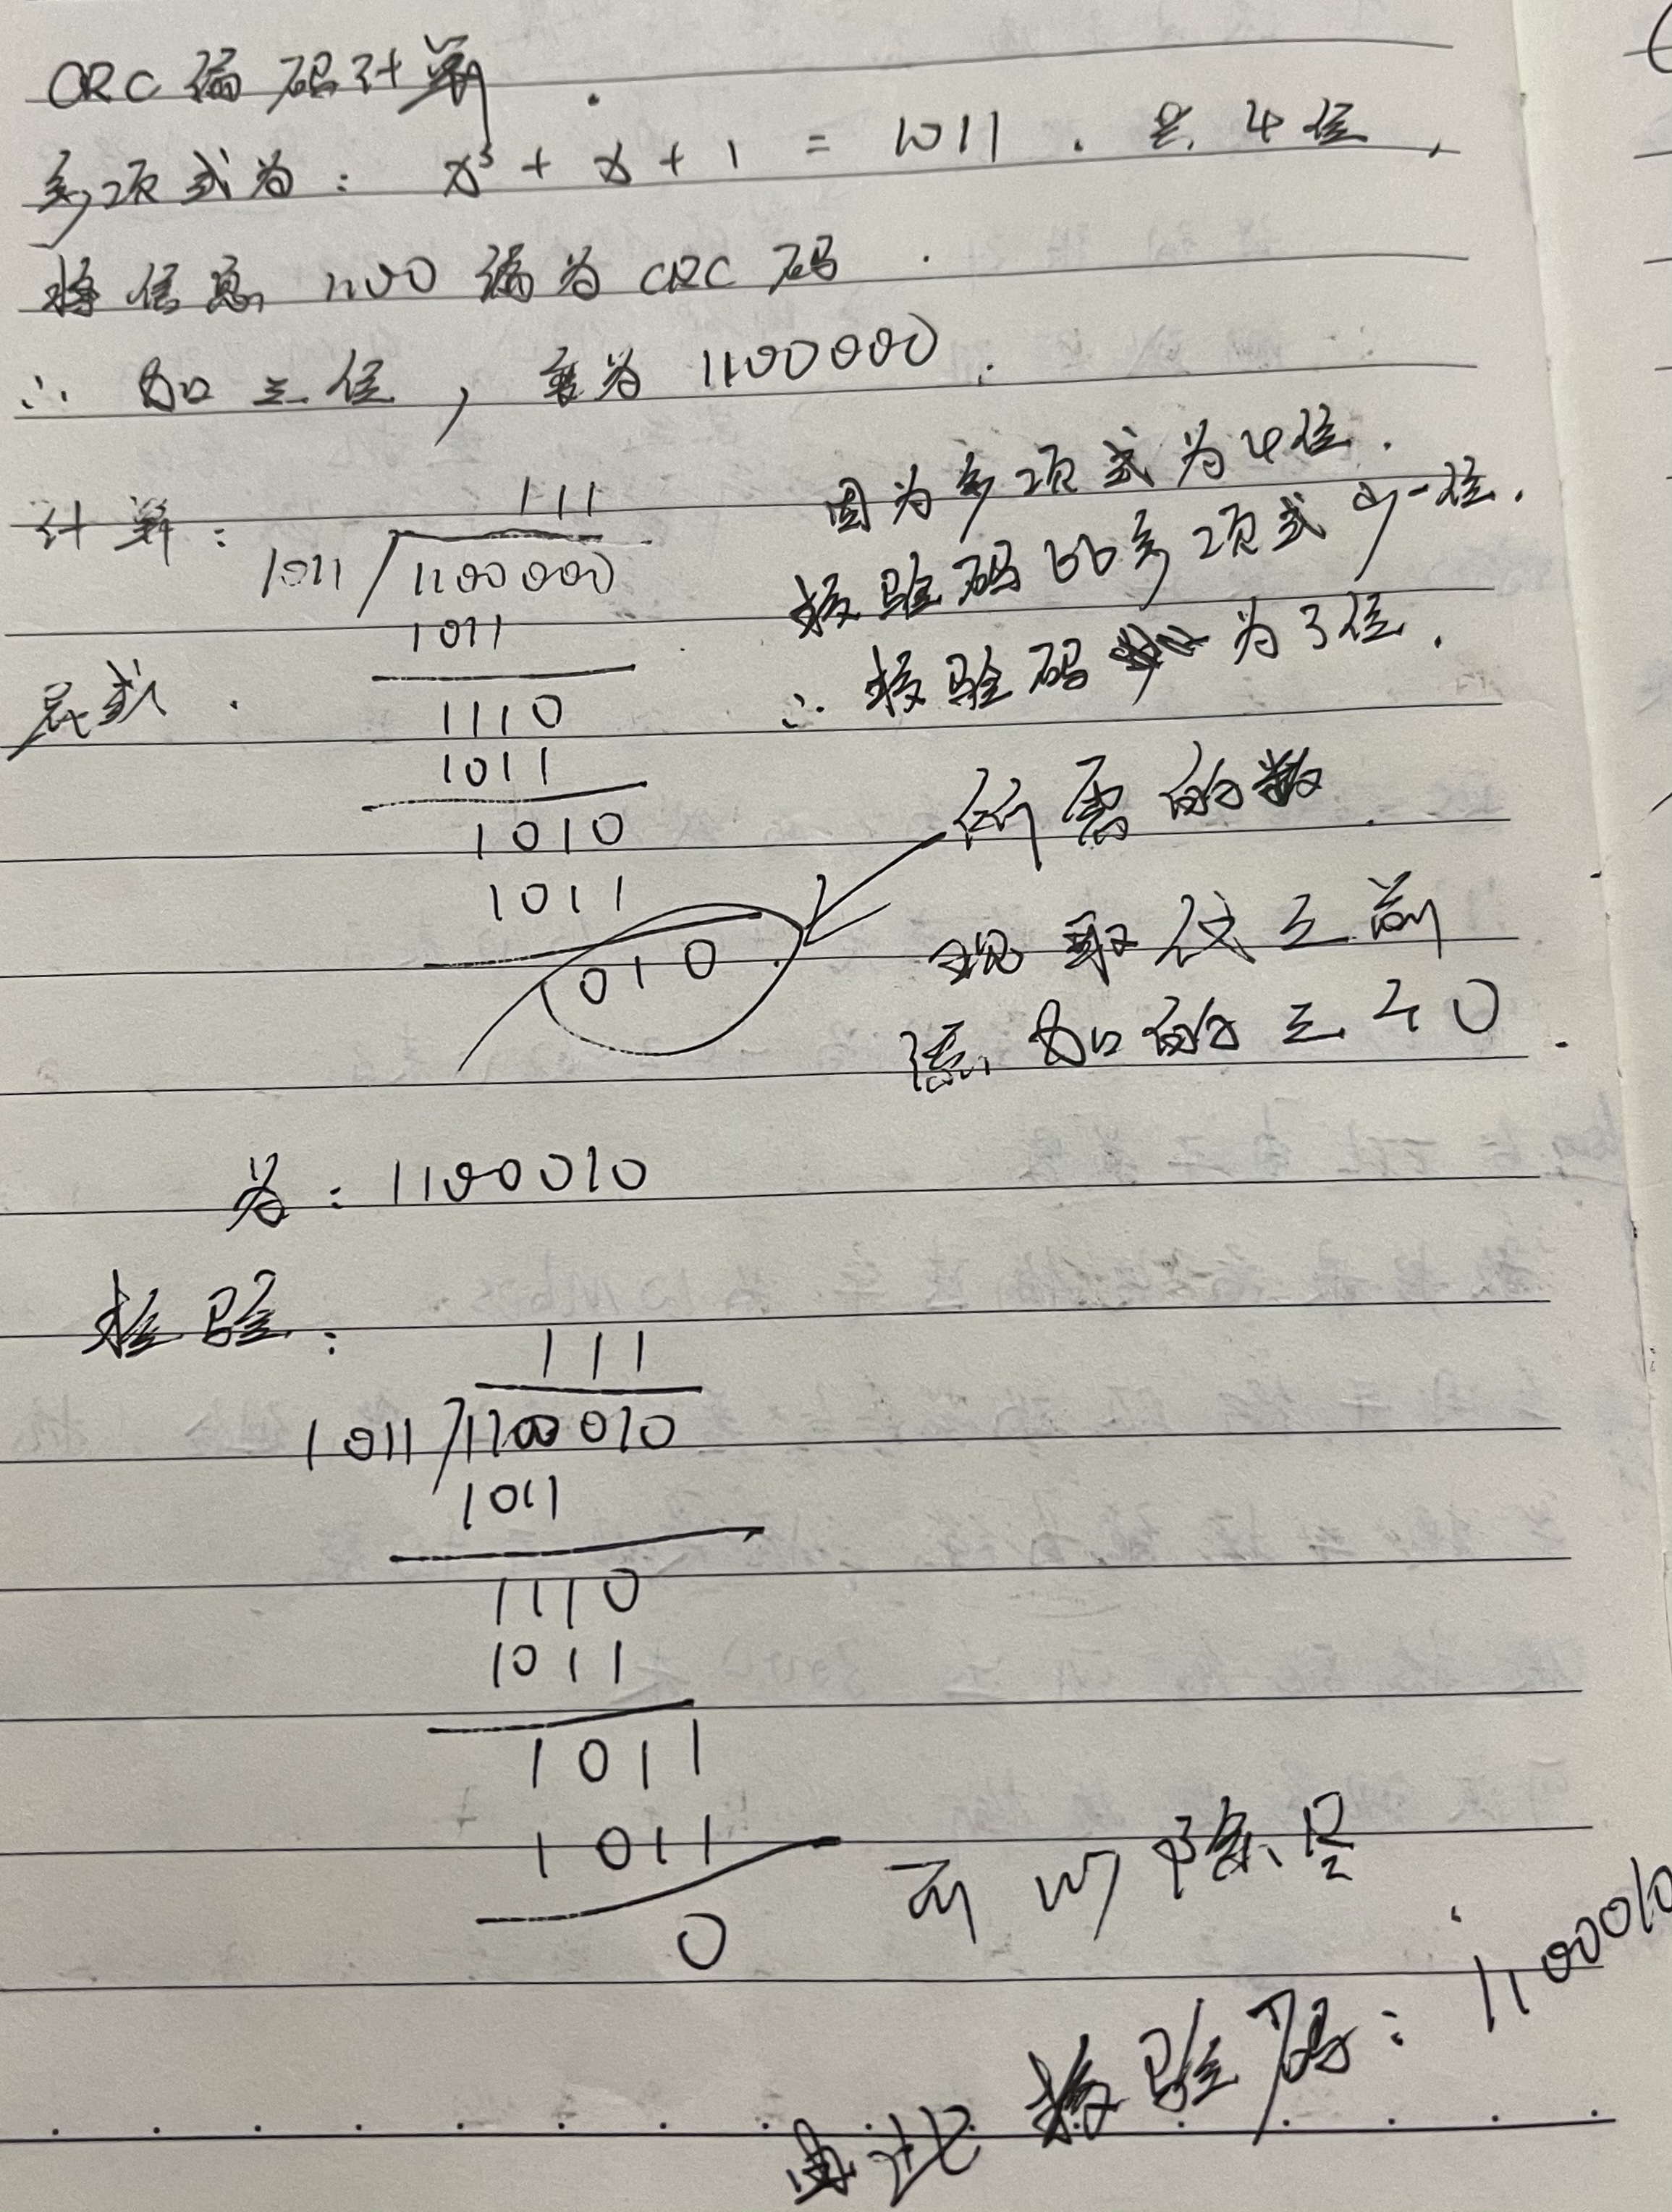 CRC编码计算.
多项式为: x³ + x + 1 = 1011 . 是 4位,
将信息 1100 编为 CRC 码.
∴ 加三位, 变为 1100000.
计算:
111
1011 / 1100000
1011
1110
1011
1010
1011
010
因为多项式为4位.
校验码比多项式少一位.
∴ 校验码 为3位.
所需的数
现取代之前
添加的三个0.
为: 1100010
检验:
111
1011 / 1100010
1011
1110
1011
1011
1011
0
可以除尽
由此校验码: 1100010